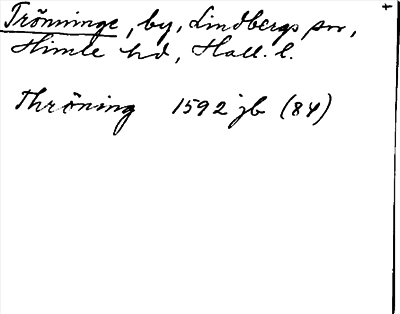 Trönninge, by, Lindbergs sn,
Himle hd, Hall. l.
Thröning 1592 jb (84)